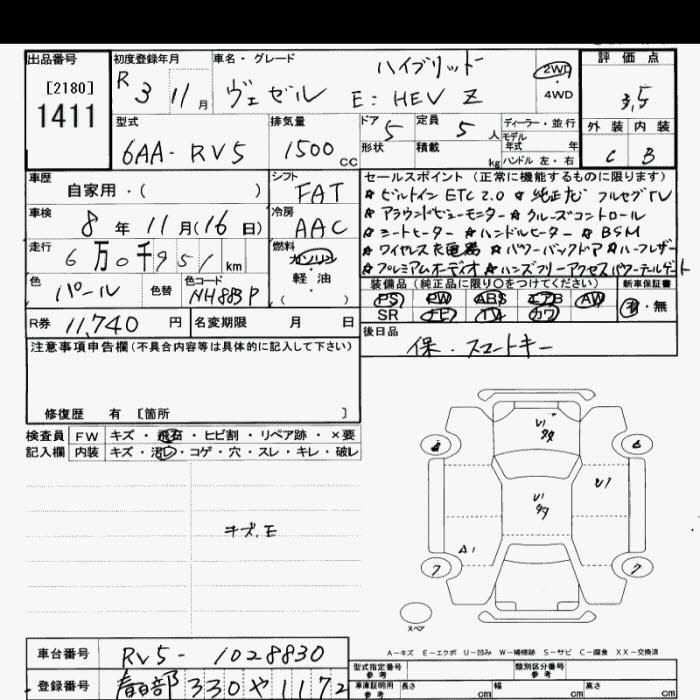 出品番号
[2180]
1411
初度登録年月
R 3 11月
車名・グレード
ハイブリッド
ヴェゼル E:HEV Z
2WD
4WD
評価点
3.5
外装 内装
C B
型式
6AA-RV5
排気量
1500cc
ドア 5
形状
定員 5人
積載 kg
ディーラー・並行
モデル年式 年
ハンドル 左・右
車歴
自家用・( )
シフト
FAT
車検
8年11月(16日)
冷房
AAC
走行
6万0千951km
燃料
ガソリン
・
軽油
( )
色
パール
色替
色コード
NH883P
R券 11,740円
名変期限 月 日
セールスポイント(正常に機能するものに限ります)
☆ビルトインETC2.0 ☆純正ナビ フルセグTV
☆アラウンドビューモニター☆クルーズコントロール
☆シートヒーター☆ハンドルヒーター☆BSM
☆ワイヤレス充電器☆パワーバックドア☆ハーフレザー
☆プレミアムオーディオ☆ハンズフリーアクセスパワーテールゲート
装備品(純正品に限り○をつけてください)
新車保証書
PS PW ABS エアB AW
SR ナビ TV カワ
有・無
後日品
保・スマートキー
注意事項申告欄(不具合内容等は具体的に記入して下さい)
修復歴 有 [箇所 ]
検査員記入欄
FW キズ・飛石・ヒビ割・リペア跡・×要
内装 キズ・汚レ・コゲ・穴・スレ・キレ・破レ
キズ.E
U1
U1
U1
A1
6
7
7
スペア
A-キズ E-エクボ U-凹み W-補修跡 S-サビ C-腐食 XX-交換済
車台番号
RV5-1028830
登録番号
春日部 330 や 1172
型式指定番号
参考
類別区分番号
参考
車庫証明用
参考
長さ cm 幅 cm 高さ cm